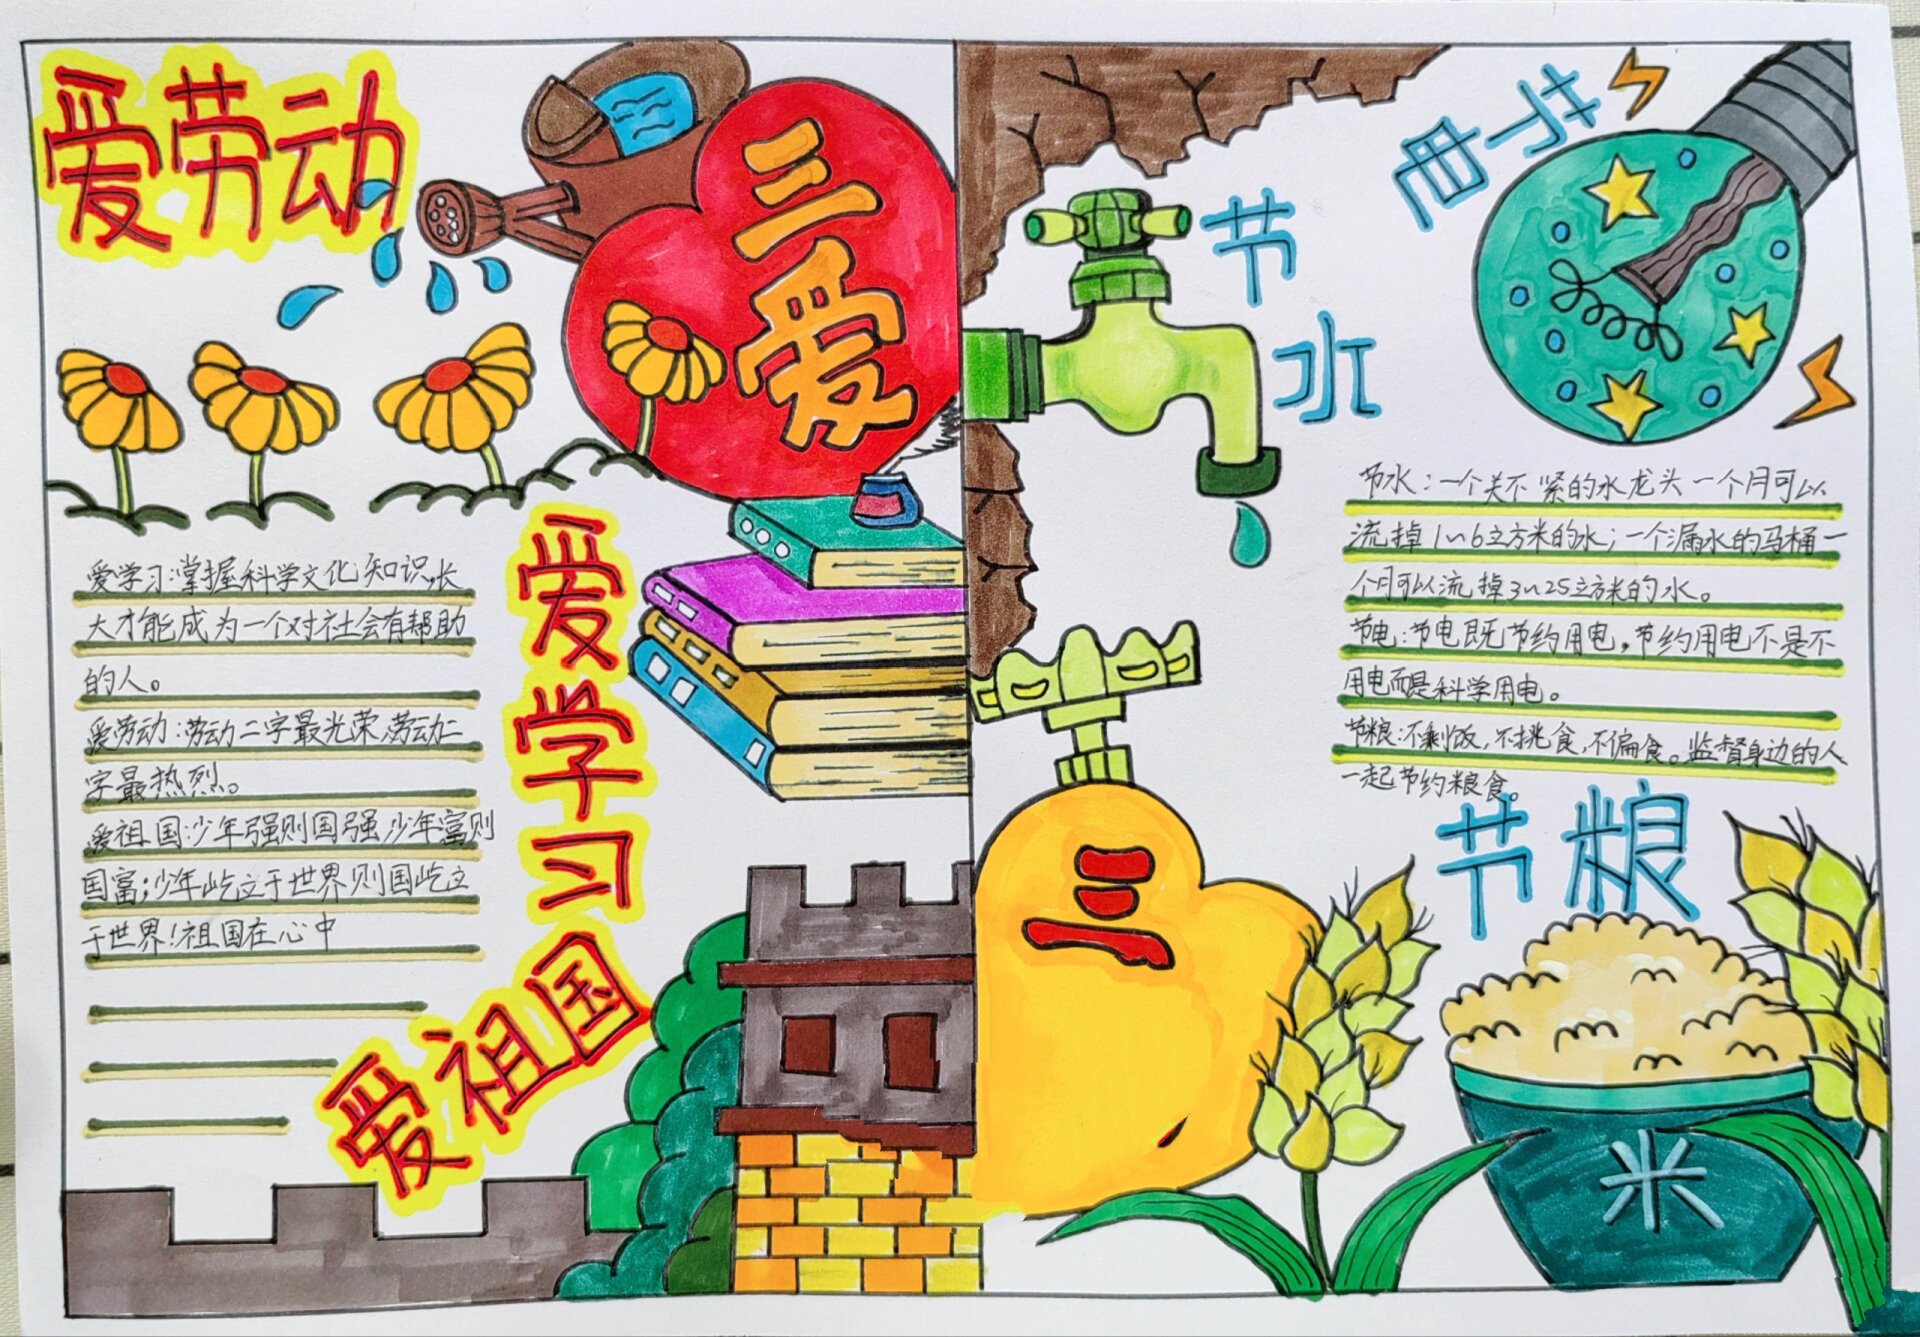 爱劳动
三爱
爱学习:掌握科学文化知识,长
大才能成为一个对社会有帮助
的人。
爱劳动:劳动二字最光荣,劳动二
字最热烈。
爱祖国:少年强则国强,少年富则
国富;少年屹立于世界则国屹立
于世界!祖国在心中
爱学习
爱祖国
节水
节电
节水:一个关不紧的水龙头一个月可以
流掉1~6立方米的水;一个漏水的马桶一
个月可以流掉3~25立方米的水。
节电:节电既节约用电,节约用电不是不
用电而是科学用电。
节粮:不剩饭,不挑食,不偏食。监督身边的人
一起节约粮食。
节粮
三
米